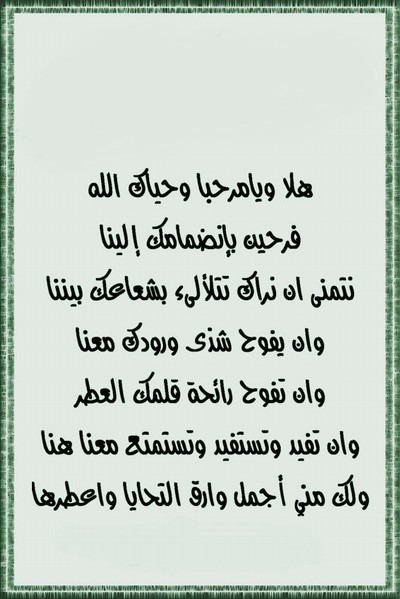 هلا ويامرحبا وحياك الله
فرحين بإنضمامك إلينا
نتمنى ان نراك تتلألىء بشعاعك بيننا
وان يفوح شذى ورودك معنا
وان تفوح رائحة قلمك العطر
وان تفيد وتستفيد وتستمتع معنا هنا
ولك مني أجمل وارق التحايا واعطرها